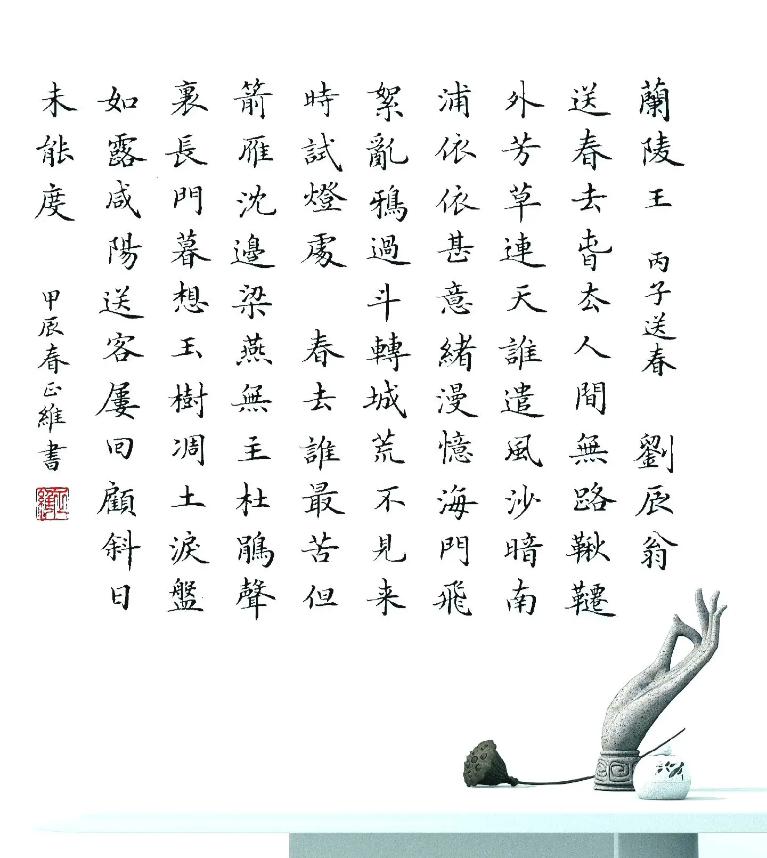 蘭陵王 丙子送春 劉辰翁
送春去旾厺人間無路鞦韆
外芳草連天誰遣風沙暗南
浦依依甚意緒漫憶海門飛
絮亂鴉過斗轉城荒不見来
時試燈處 春去誰最苦但
箭雁沈邊梁燕無主杜鵑聲
裏長門暮想玉樹凋土淚盤
如露咸陽送客屢回顧斜日
未能度 甲辰春正維書